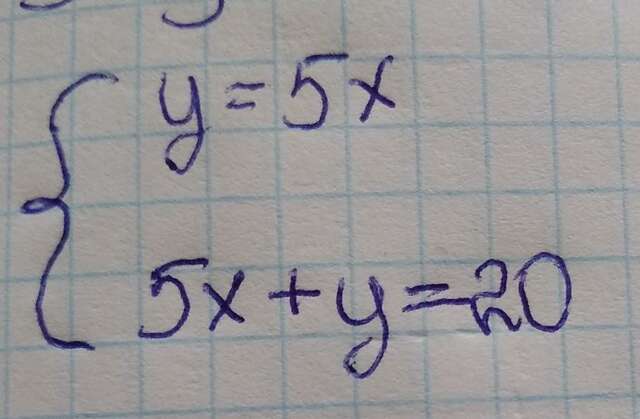 { y = 5x
5x + y = -20